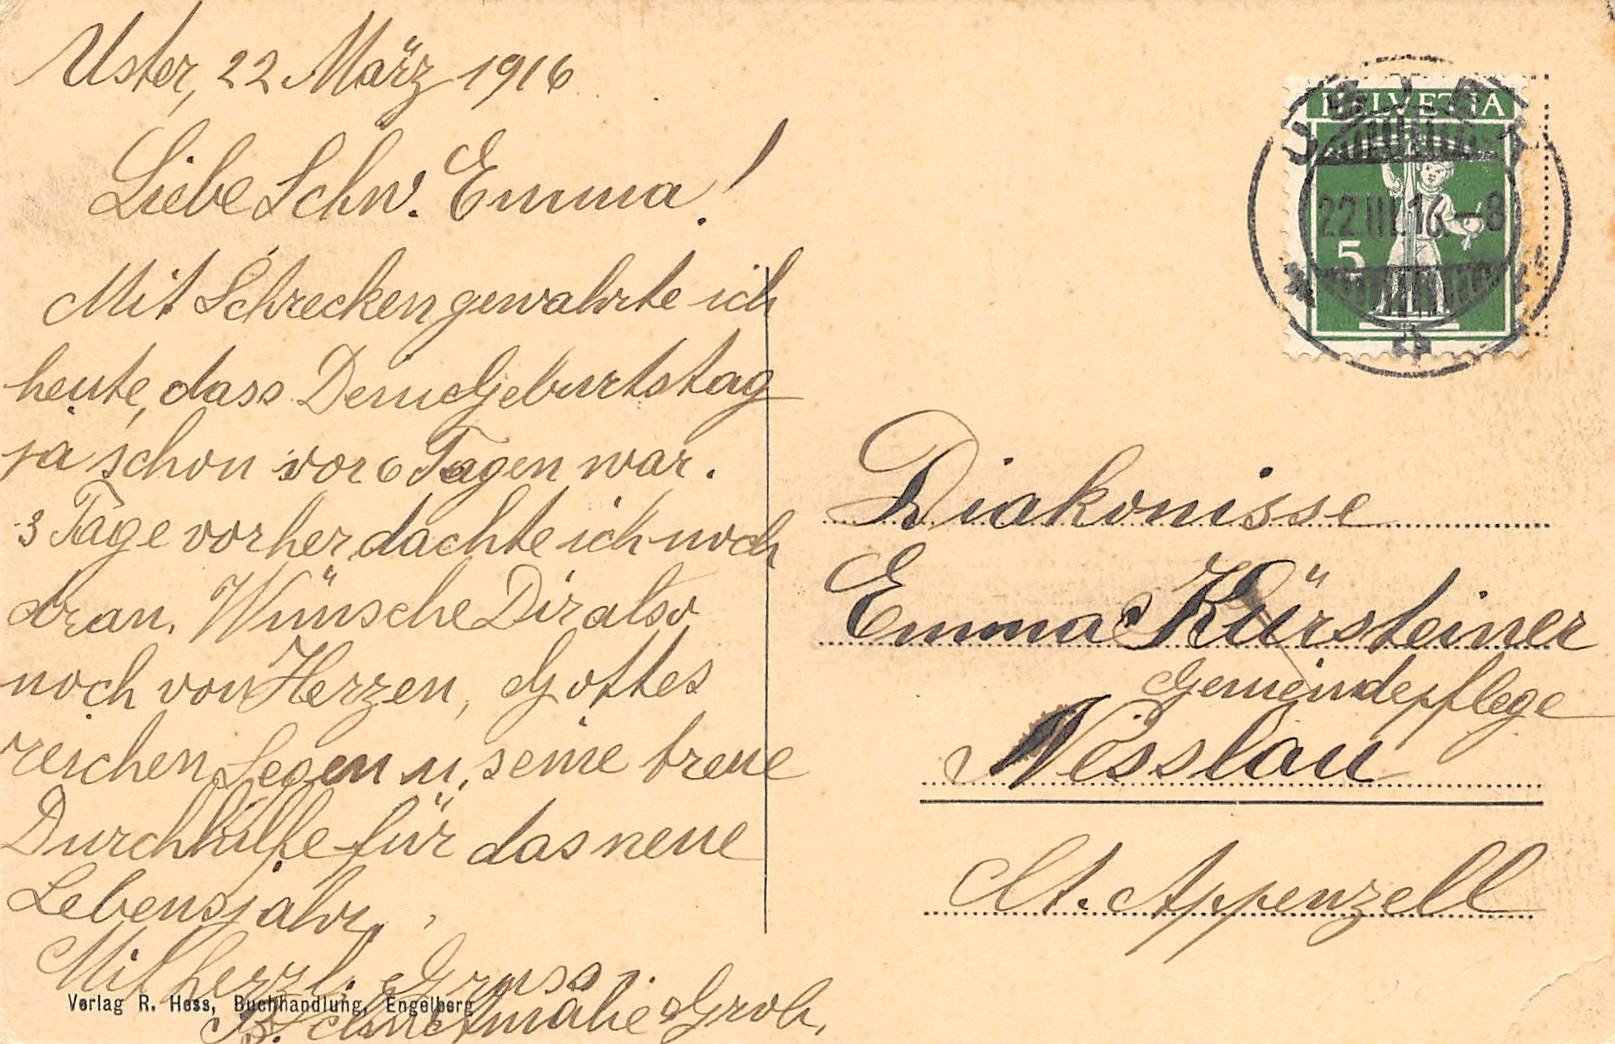 Uster, 22 März 1916.
Liebe Schw. Emma!
Mit Schrecken gewahrte ich
heute, dass Dein Geburtstag
ja schon vor 6 Tagen war.
3 Tage vorher dachte ich noch
dran. Wünsche Dir also
noch von Herzen, Gottes
reichen Segen u. seine treue
Durchhülfe für das neue
Lebensjahr.
Mit herzl. Gruss
Schw. Amalie Grob.
Verlag R. Hess, Buchhandlung, Engelberg
HELVETIA
5
USTER
22.III.16.-8
Diakonisse
Emma Kürsteiner
Gemeindepflege
Nesslau
Ct. Appenzell